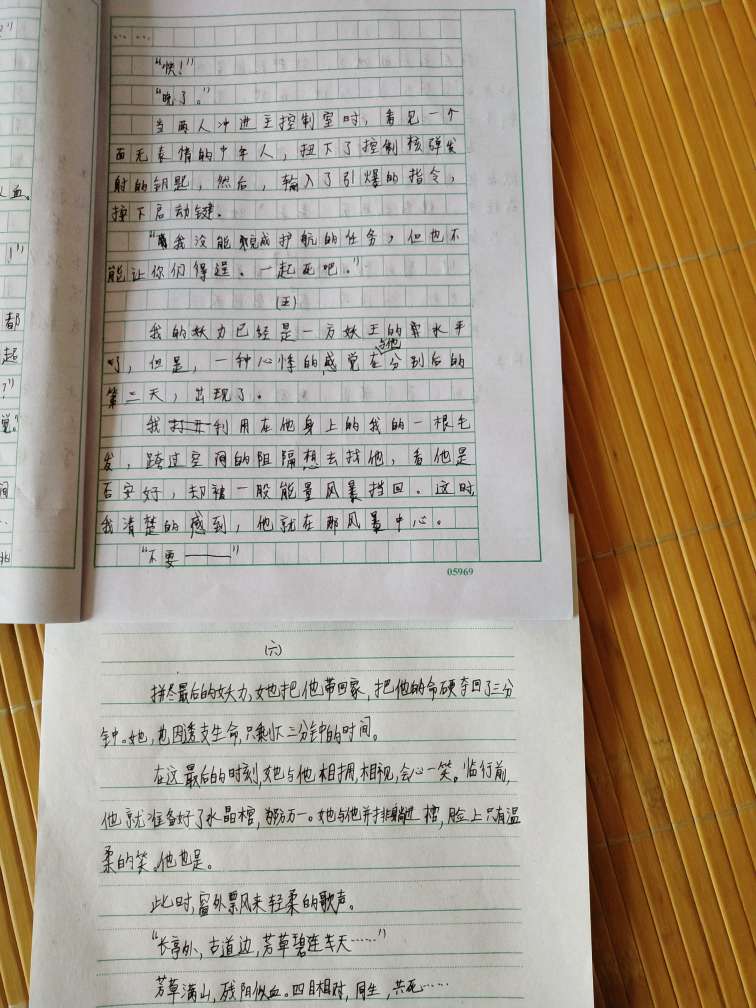 ……
“快！”
“晚了。”
当两人冲进主控制室时，看见一个
面无表情的少年人，扭下了控制核弹发
射的钥匙，然后，输入了引爆的指令，
按下启动键。
“我没能完成护航的任务，但也不
能让你们得逞。一起死吧。”
（五）
我的妖力已经是一方妖王的水平
了，但是，一种心悸的感觉在与他分别后的
第二天，出现了。
我利用在他身上的我的一根毛
发，跨过空间的阻隔想去找他，看他是
否安好，却被一股能量风暴挡回。这时
我清楚的感到，他就在那风暴中心。
“不要———”
05969
（六）
拼尽最后的妖力，她把他带回家，把他的命硬夺回了三分
钟。她，也因透支生命，只剩下三分钟的时间。
在这最后的时刻，她与他相拥，相视，会心一笑。临行前，
他就准备好了水晶棺，以防万一。她与他并排躺进棺，脸上只有温
柔的笑。他也是。
此时，窗外飘来轻柔的歌声。
“长亭外，古道边，芳草碧连天……”
芳草满山，残阳似血。四目相对，同生，共死……
血。
！”
都
起
？”
觉。”